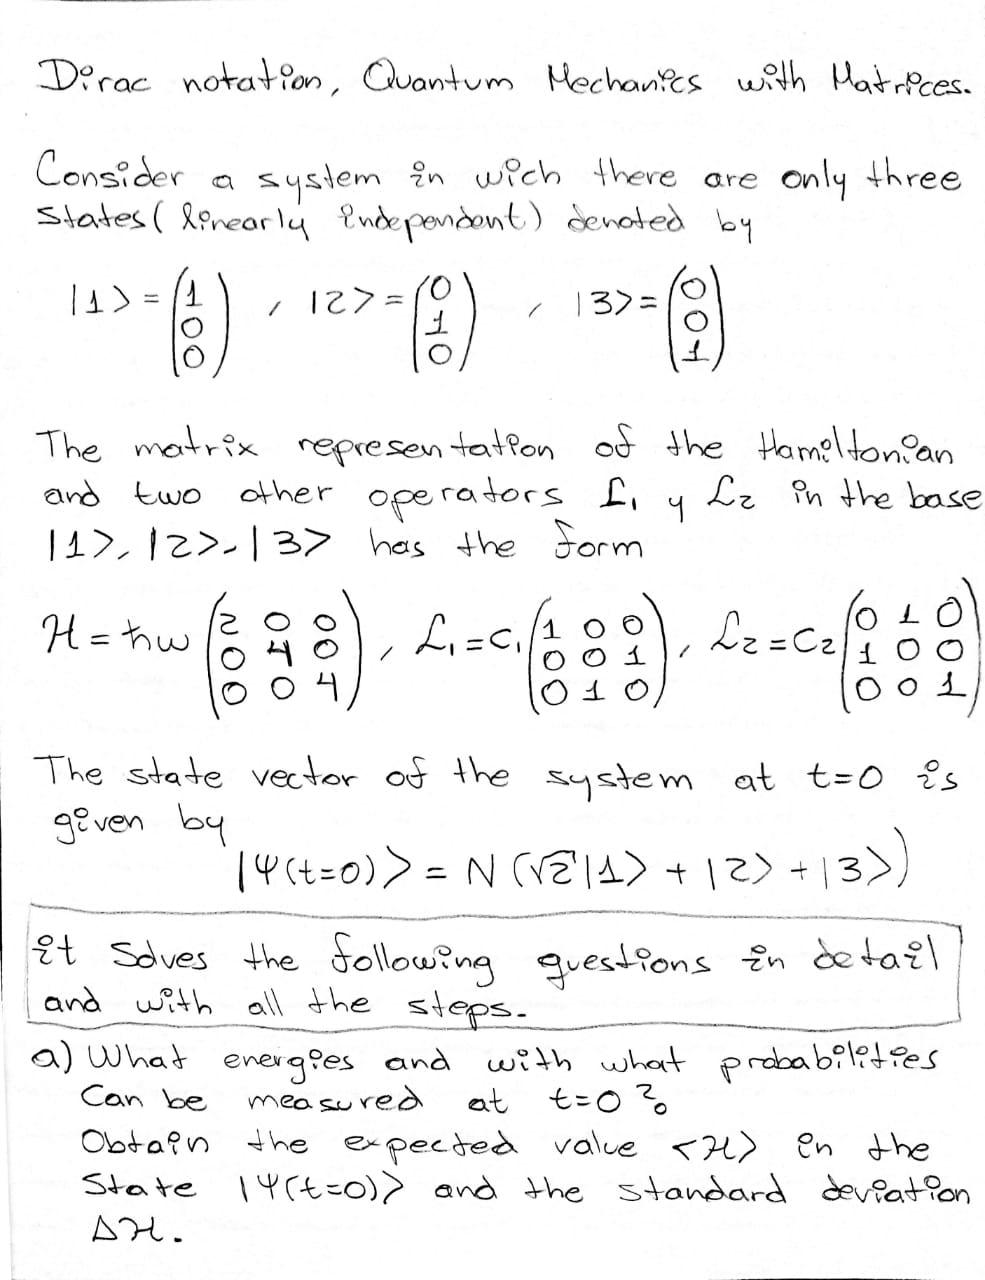 Dirac notation, Quantum Mechanics with Matrices.
Consider a system in wich there are only three
states (linearly independent) denoted by
|1> = (1 0 0) , |2> = (0 1 0) , |3> = (0 0 1)
The matrix representation of the Hamiltonian
and two other operators L₁ y L₂ in the base
|1>, |2>, |3> has the form
H = ħw (2 0 0 / 0 4 0 / 0 0 4) , L₁ = C₁ (1 0 0 / 0 0 1 / 0 1 0) , L₂ = C₂ (0 1 0 / 1 0 0 / 0 0 1)
The state vector of the system at t=0 is
given by
|Ψ(t=0)> = N (√2|1> + |2> + |3>)
it Solves the following questions in detail
and with all the steps.
a) What energies and with what probabilities
Can be measured at t=0?
Obtain the expected value <H> in the
State |Ψ(t=0)> and the standard deviation
ΔH.